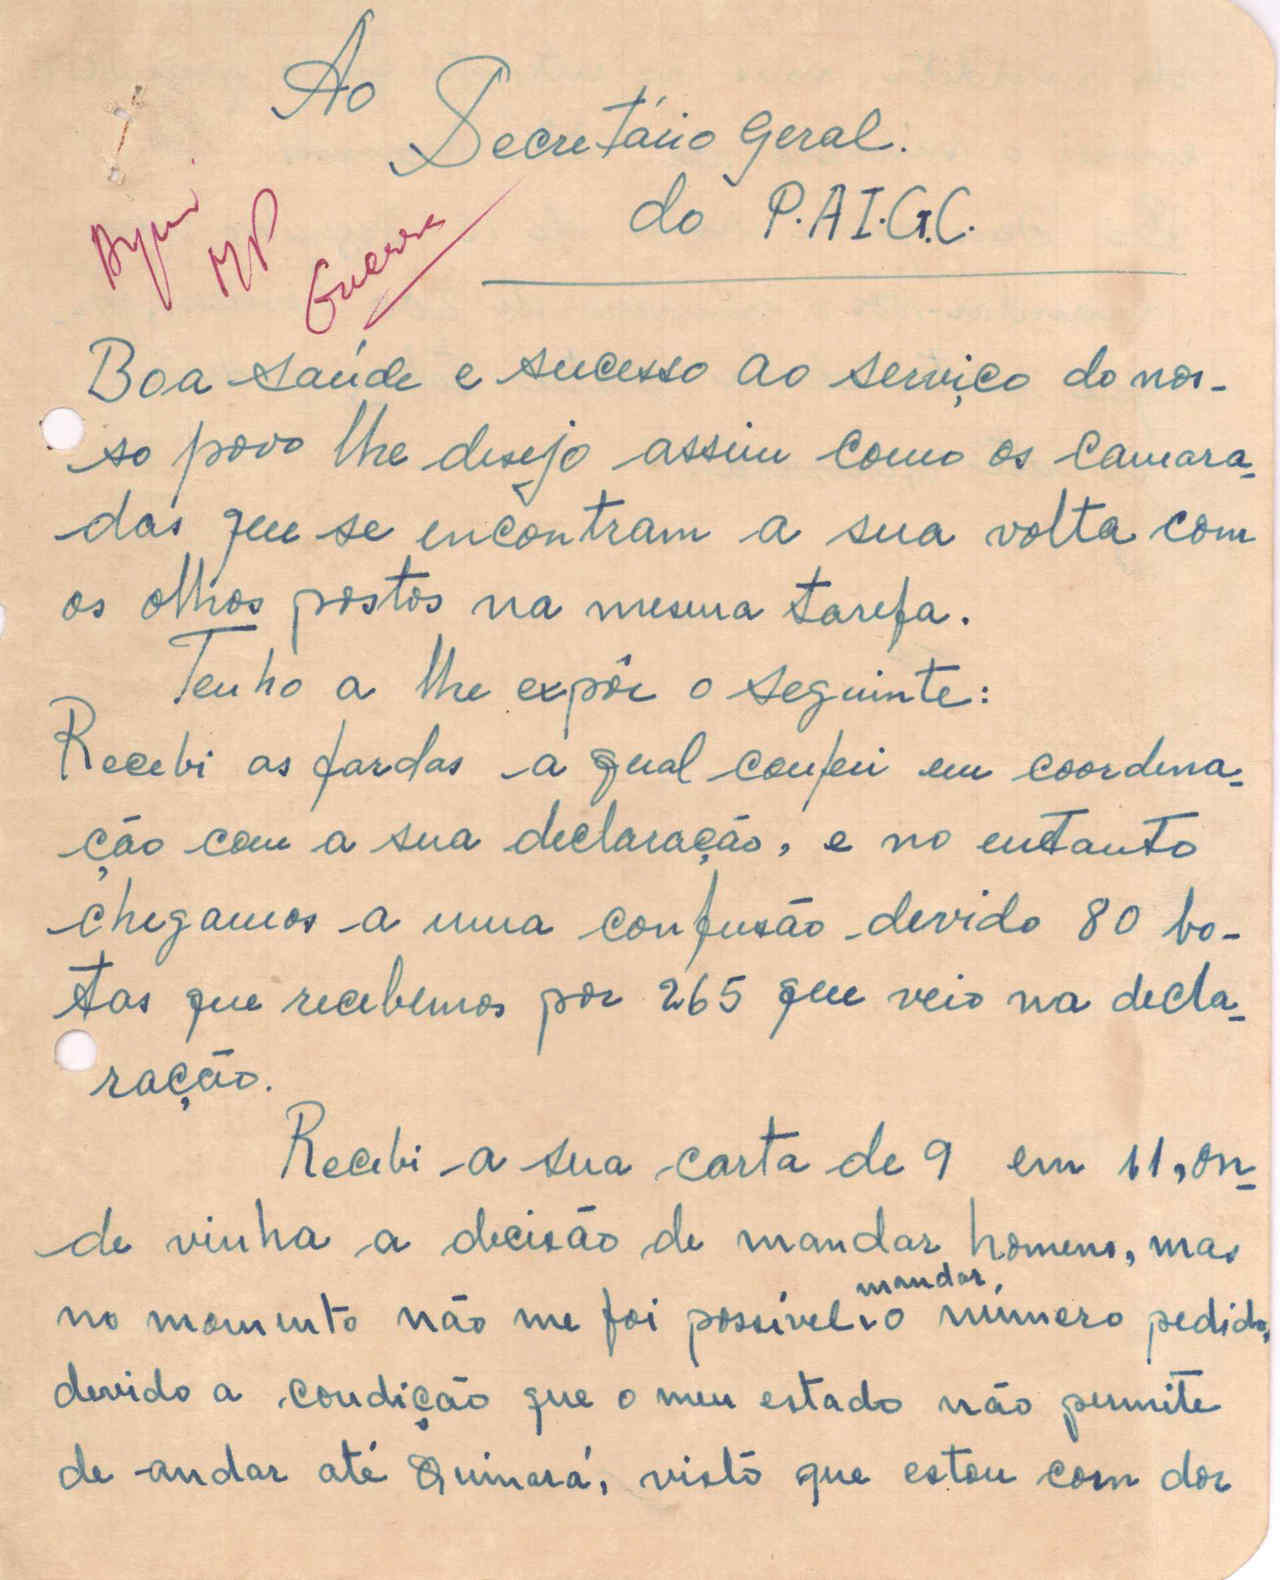 Ao
Secretário Geral.
do P.A.I.G.C.
MP
Guerra
Boa saúde e sucesso ao serviço do nos-
so povo lhe desejo assim como os camara-
das que se encontram a sua volta com
os olhos postos na mesma tarefa.
Tenho a lhe expôr o seguinte:
Recebi as fardas a qual conferi em coordena-
ção com a sua declaração, e no entanto
chegamos a uma confusão devido 80 bo-
tas que recebemos por 265 que veio na decla-
ração.
Recebi a sua carta de 9 em 11, on-
de vinha a decisão de mandar homens, mas
mandar,
no momento não me foi possível o número pedido,
devido a condição que o meu estado não permite
de andar até Quinará, visto que estou com dor